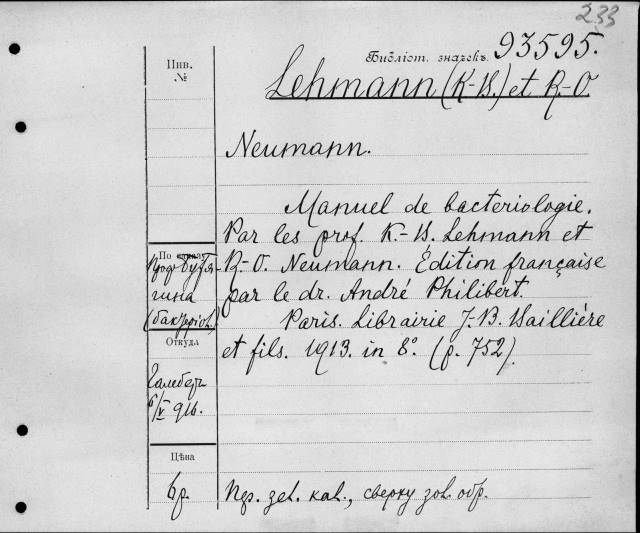 233
Библіот. значекъ. 93595.
Инв.
№
Lehmann (K-B.) et R.-O.
Neumann.
Manuel de bacteriologie.
Par les prof. K.-B. Lehmann et
R.-O. Neumann. Édition française
par le dr. André Philibert.
Paris. Librairie J. B. Baillière
et fils. 1913. in 8°. (p. 752)
По заказу
проф. Бутя-
гина
(бактеріол.)
Откуда
6/V 916.
Цѣна
6р.
зел. кал., сверху зол. обр.